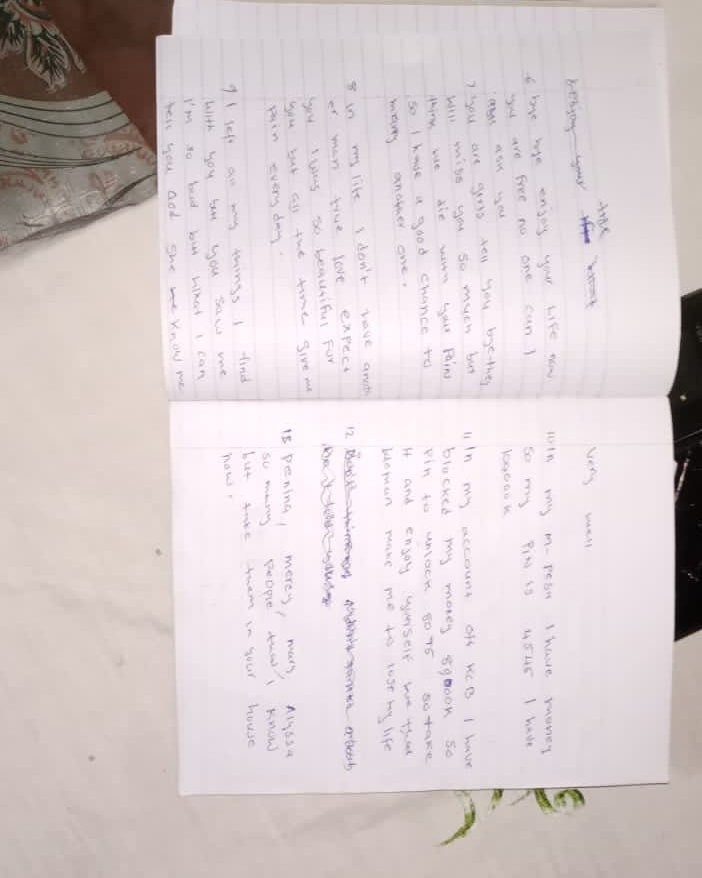 true
betray your
6 bye bye enjoy your life now
you are free no one can I
ask you
7 you are girls tell you bye they
will miss you so much but
die with your pain
so I have a good chance to
marry another one.
8 In my life I don't have anoth
er man true love expect
you I was so beautiful for
you but all the time give me
pain every day.
9 I left all my things I find
with you but you saw me
I'm so bad but what I can
tell you God she know me
very well
10 In my m-pesa I have money
so my PIN is 4545 I have
100000K
11 In my account off KCB I have
blocked my money 89000K so
Pin to unlock 8095 so take
it and enjoy yourself
woman make me to lose my life
12
13 pening, mercy, mary, Alyssa
so many people that I know
but take them in your house
now.